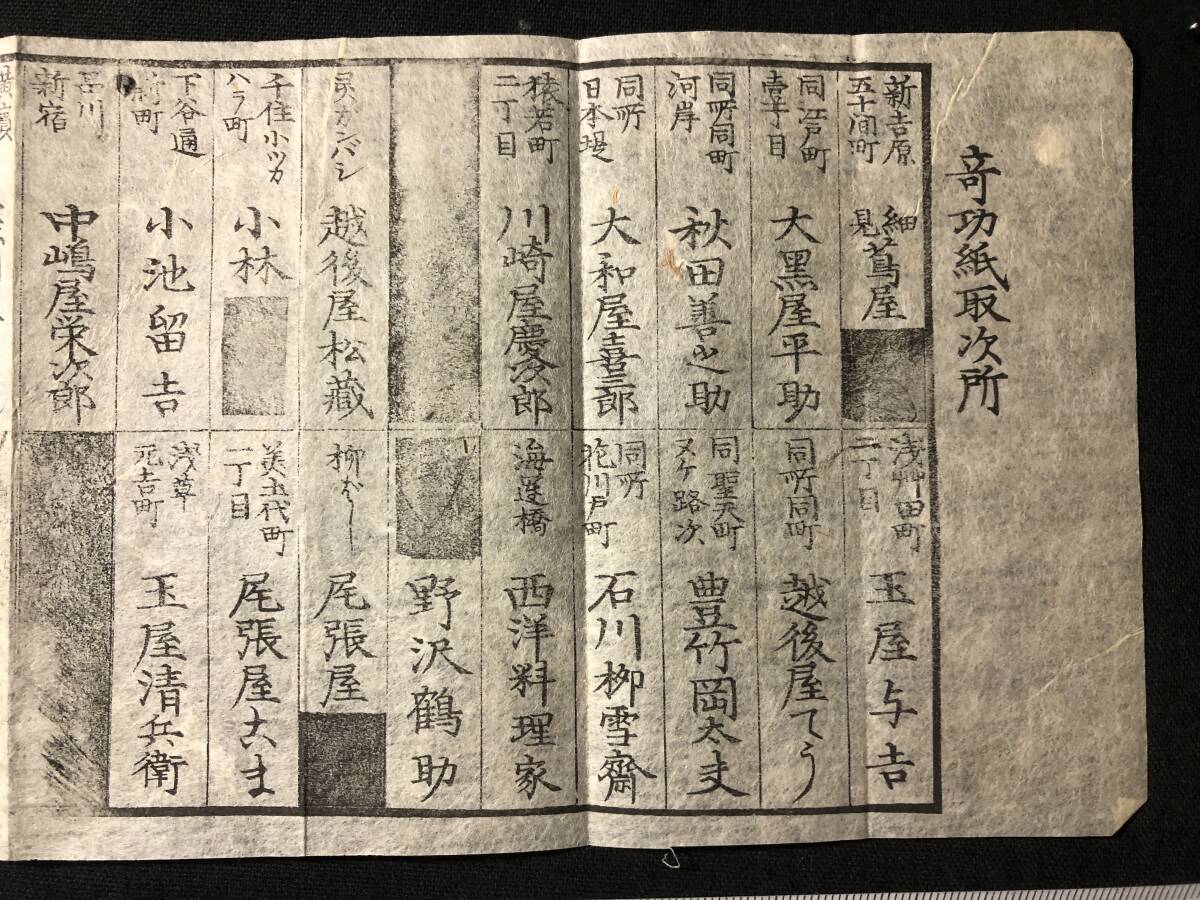 奇功紙取次所
新吉原
五十間町
細見
蔦屋
同江戸町
壱丁目
大黒屋平助
同所同町
河岸
秋田善之助
同所
日本堤
大和屋喜三郎
猿若町
二丁目
川崎屋慶次郎
越後屋松蔵
千住小ツカ
ハラ町
小林
下谷通
新町
小池留吉
品川
新宿
中嶋屋栄次郎
横濱
浅艸田町
二丁目
玉屋与吉
同所同町
越後屋てう
同聖天町
ヌケ路次
豊竹岡太夫
同所
花川戸町
石川柳雪齋
海運橋
西洋料理家
野沢鶴助
柳ばし
尾張屋
美土代町
二丁目
尾張屋こま
浅草
元吉町
玉屋清兵衛